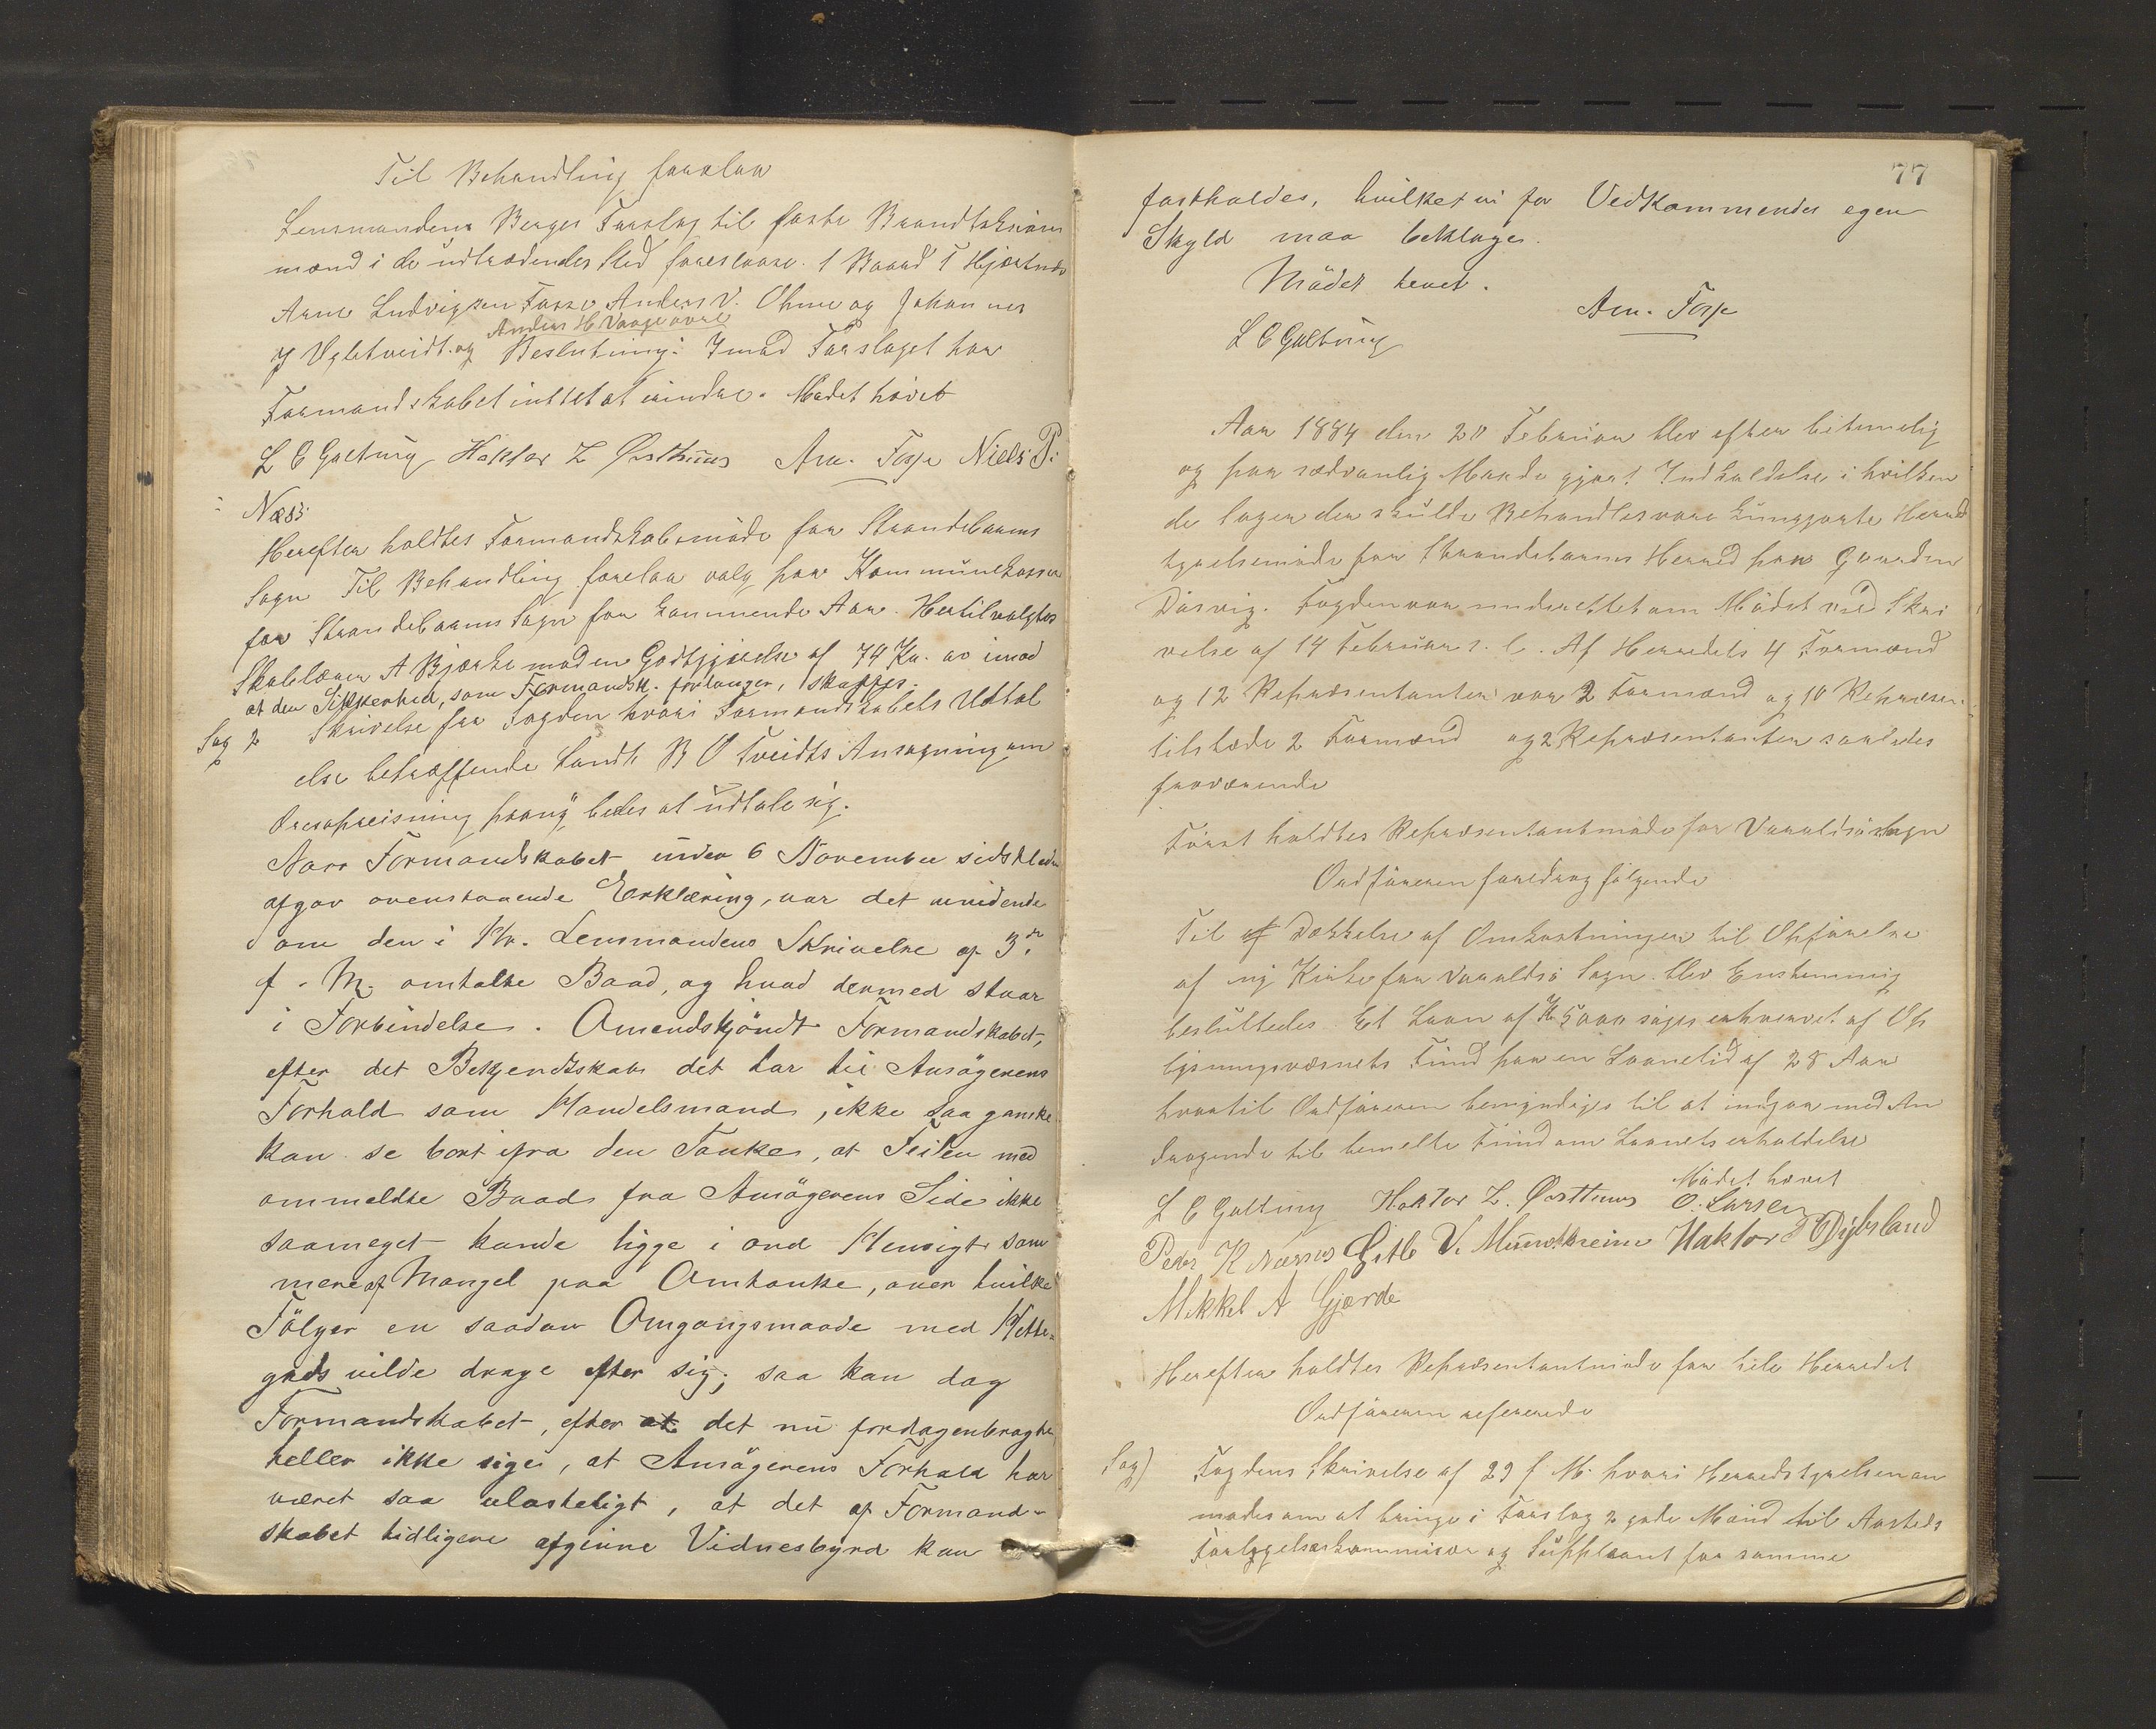 Til Behandling forelaa
Lensmandens Berges Forslag til faste Brandtaksions
mænd i de udtrædendes Sted foreslaaes. 1 Baard T Hjærtnæs
Arne Ludvigsen Fosse Anders V. Ohme og Johannes
Anders H Vaage
J Ugletveidt. og Beslutning: Imod Forslaget har
Formandskabet intet at erindre. Mødet hævet
L E Galtung Haktor L Østhuus Arn. Fosse Niels P.
Næss.
Herefter holdtes Formandskabsmöde for Strandebarms
Sogn Til Behandling forelaa valg paa Kommunekasser
for Strandebarms Sogn for kommende Aar. Hertil valgtes
Skolelærer A Bjærke mod en Godtgjørelse af 74 Kr. av imod
at den Sikkerhed, som Formandsk. forlanger, skaffes.
Sag 2 Skrivelse fra Fogden hvori Formandskabets Udtal
else betræffende Landh. B O Tveidts Ansøgning om
Oreisopreisning paany bedes at udtale sig.
Naar Formandskabet under 6 November sidstleden
afgav ovenstaaende Erklæring, var det uvidende
om den i Hr. Lensmandens Skrivelse af 3die
f. M. omtalte Baad, og hvad dermed staar
i Forbindelse. Omendskjöndt Formandskabet,
efter det Bekjendtskab det har til Ansögerens
Forhold som Handelsmand, ikke saa ganske
kan se bort ifra den Tanke, at Feilen med
ommeldte Baad fra Ansögerens Side ikke
saameget kunde ligge i ond Hensigt som
mere af Mangel paa Omtanke, over hvilke
Fölger en saadan Omgangsmaade med Hitte-
gods vilde drage efter sig; saa kan dog
Formandskabet, efter at det nu fordagenbragte,
heller ikke sige, at Ansögerens Forhold har
været saa ulasteligt, at det af Formand-
skabet tidligere afgivne Vidnesbyrd kan
77
fastholdes, hvilket vi for Vedkommendes egen
Skyld maa beklage.
Mödet hevet.
Arn. Fosse
L E Galtung
Aar 1884 den 20 Februar blev efter betimelig
og paa sædvanlig Maade gjort Indkaldelse i hvilken
de Sager der skulde Behandles vare kungjorte Herred
styrelsemöde for Strandebarms Herred paa Gaarden
Dösvig. Fogden var underrettet om Mödet ved Skri
velse af 14 Februar s. l. Af Herredets 4 Formænd
og 12 Repræsentanter var 2 Formænd og 10 Repræsen.
tilstede 2 Formænd og 2 Repræsentanter saaledes
fraværende
Först holdtes Repræsentantmöde for Varaldsö Sogn
Ordföreren foredrog fölgende
Til af Dækkelse af Omkostninger til Opförelse
af ny Kirke for Varaldsö Sogn blev Enstemmig
besluttedes Et Laan af Kr 5000 söges erhvervet af Op
lysningsvæsnets Fund paa en Laanetid af 28 Aar
hvortil Ordföreren bemyndiges til at indgaa med An
dragende til bemelte Fund om Laanets erholdelse
Mödet hævet
L E Galtung Haktor L. Østhuus O. Larsen
Peder K Næsses Gitle V. Mundheim Haktor T Dysland
Mikkel A Gjerde
Herefter holdtes Repræsentantmöde for hele Herredet
Ordföreren refererede
Sag) Fogdens Skrivelse af 29 f. M. hvori Herredstyrelsen an
modes om at bringe i Forslag 2 gode Mænd til Aasteds
Forlygelseskommisær og Suppleant for samme